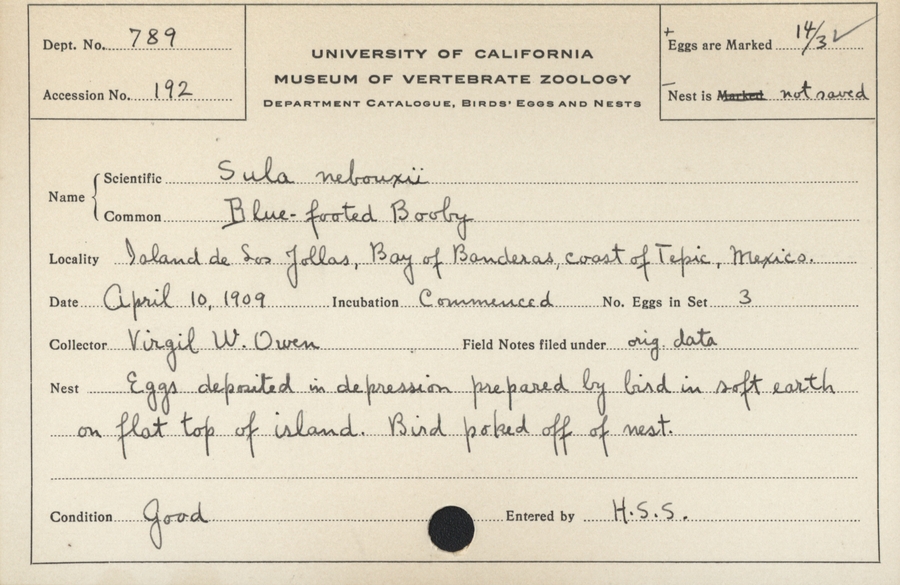 Dept. No. 789
Accession No. 192
UNIVERSITY OF CALIFORNIA
MUSEUM OF VERTEBRATE ZOOLOGY
DEPARTMENT CATALOGUE, BIRDS' EGGS AND NESTS
+ Eggs are Marked 14/3 ✓
— Nest is Marked not saved
Name
Scientific Sula nebouxii
Common Blue-footed Booby
Locality Island de Los Jollas, Bay of Banderas, coast of Tepic, Mexico.
Date April 10, 1909 Incubation Commenced No. Eggs in Set 3
Collector Virgil W. Owen Field Notes filed under orig. data
Nest Eggs deposited in depression prepared by bird in soft earth
on flat top of island. Bird poked off of nest.
Condition Good Entered by H.S.S.